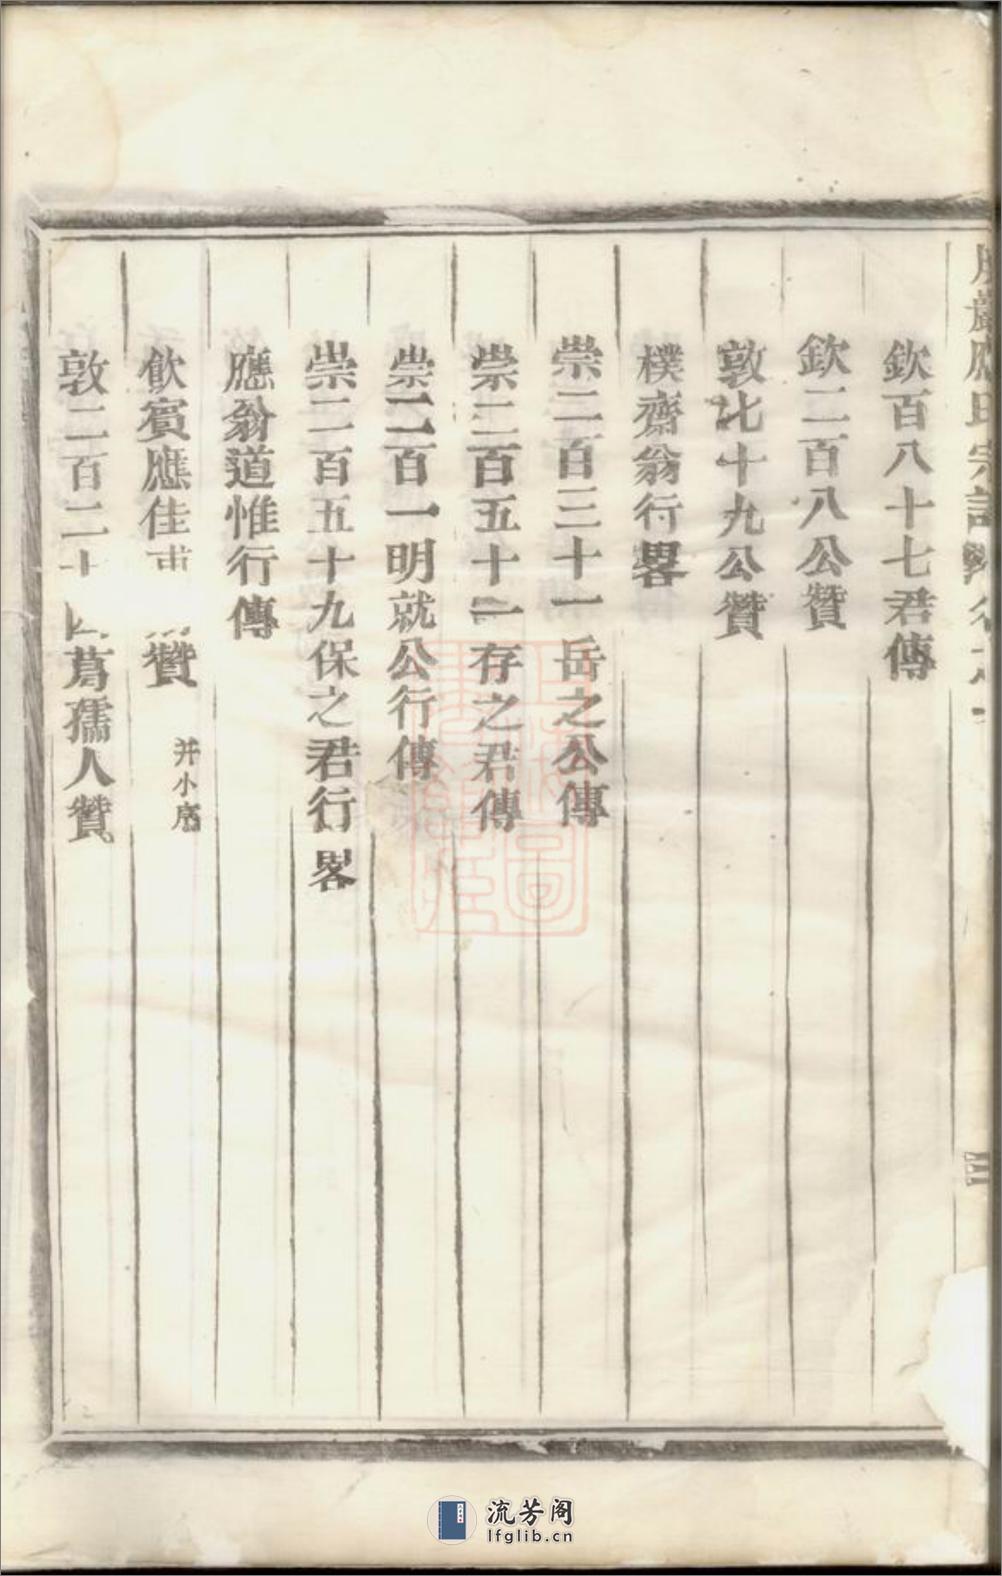 應氏宗譜
欽百八十七君傳
欽二百八公贊
敦七十九公贊
樸齋翁行畧
崇二百三十一岳之公傳
崇二百五十一存之君傳
崇二百一明就公行傳
崇二百五十九保之君行畧
應翁道惟行傳
飲賓應佳贊并小序
敦二百二十四蔦孺人贊
三
流芳阁
lfglib.cn